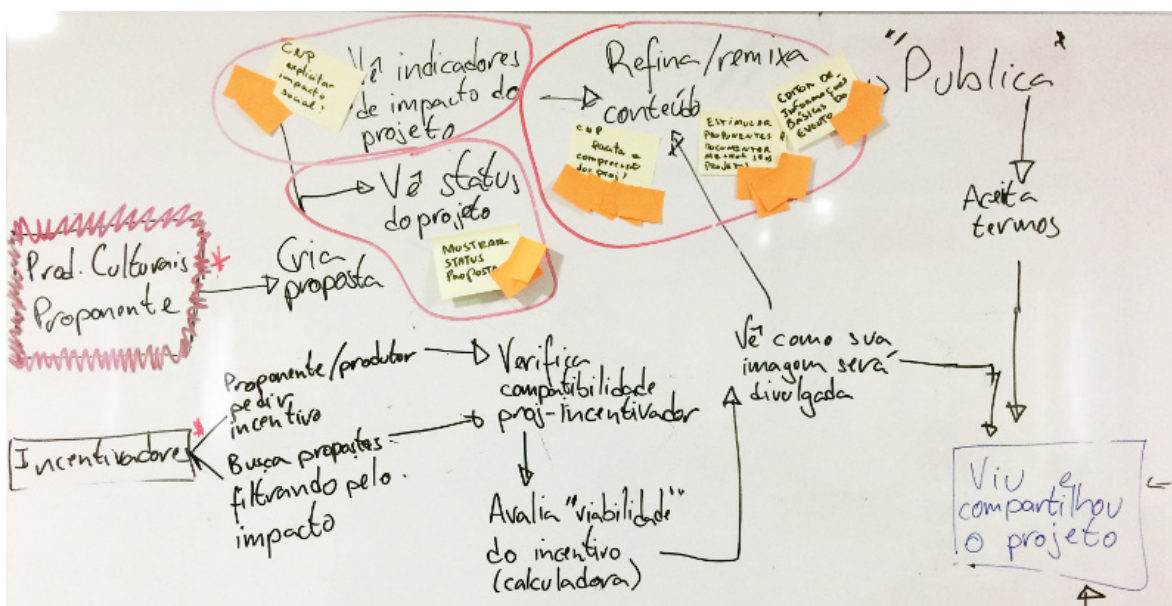 CNP
explicitar
impacto
social!
Vê indicadores
de impacto do
projeto
Refina/remixa
conteúdo
CNP
facita a
compreensão
dos proj!
ESTIMULAR
PROPONENTES
DOCUMENTAR
MELHOR SEUS
PROJETOS
EDITOR DE
INFORMAÇÕES
BÁSICAS DO
EVENTO
"Publica"
Aceita
termos
Vê status
do projeto
MOSTRAR
STATUS
PROPOSTA
Prod. Culturais
Proponente
Cria
proposta
Incentivadores
Proponente/produtor
pedir
incentivo
Busca propostas
filtrando pelo
impacto
Verifica
compatibilidade
proj-incentivador
Avalia "viabilidade"
do incentivo
(calculadora)
Vê como sua
imagem será
divulgada
Viu e
compartilhou
o projeto